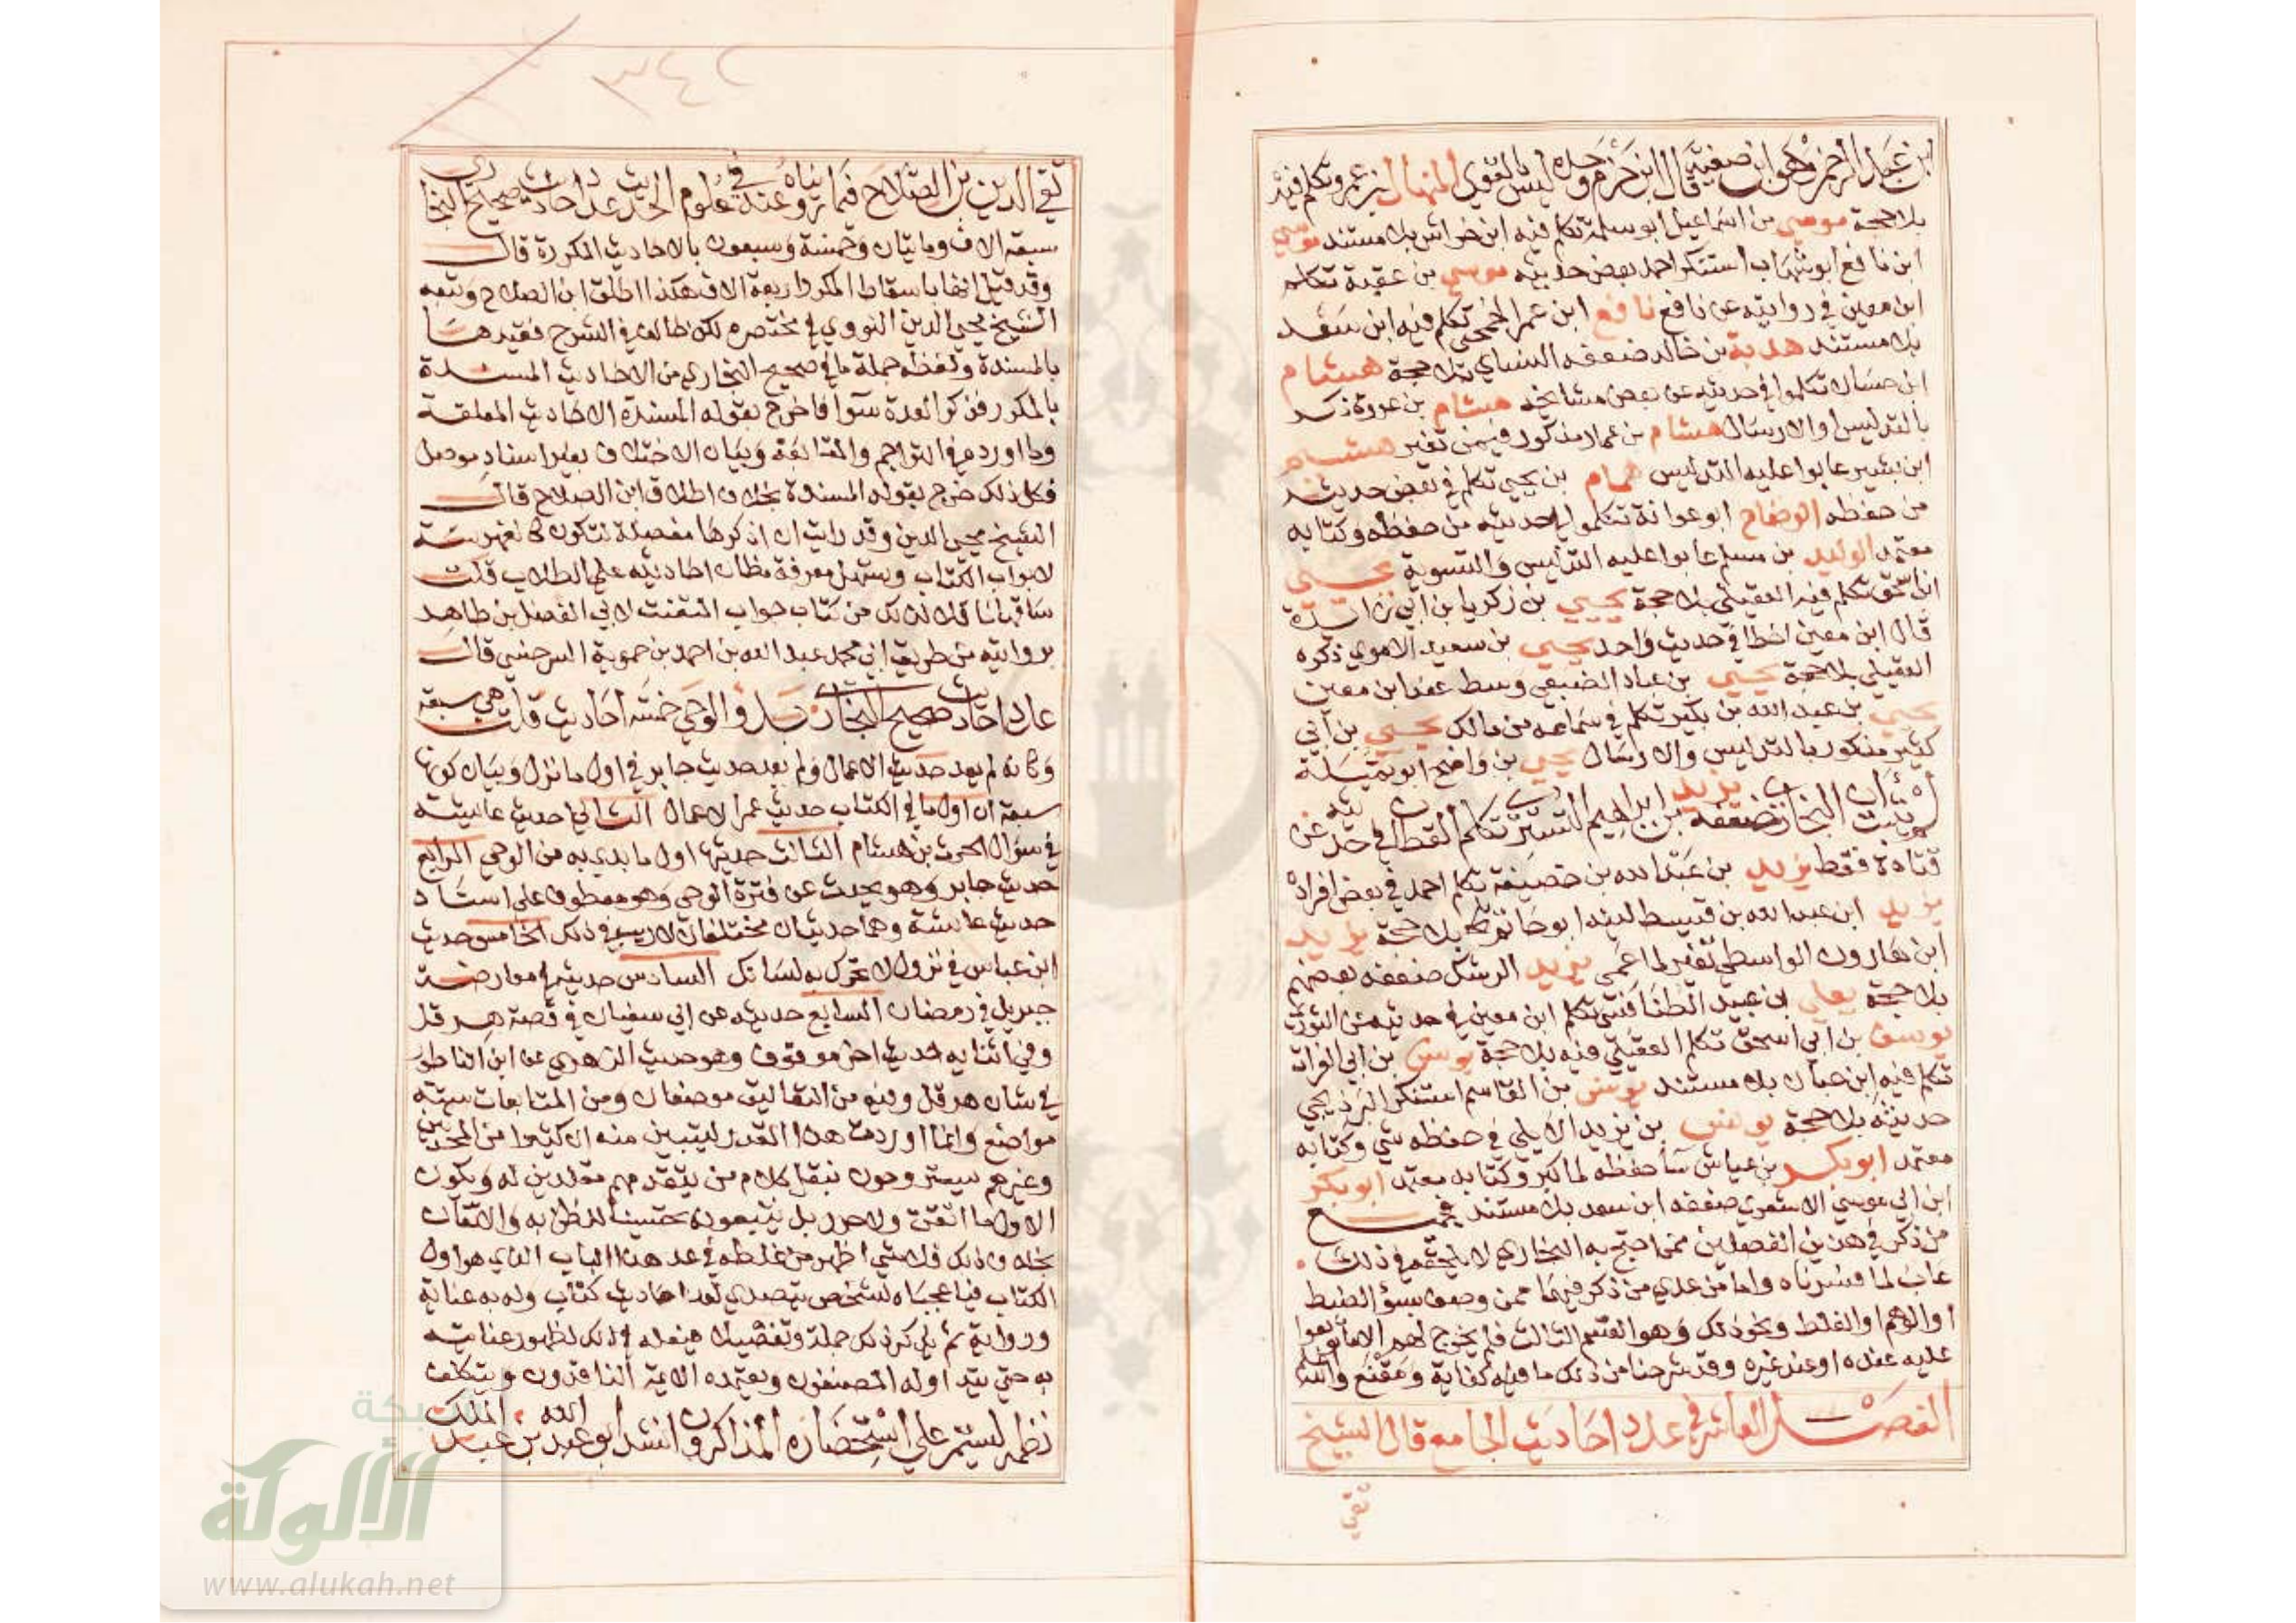 ابن عبد الرحمن وهو ابن صفية قال ابن حزم وحده ليس بالقوي المنهال بن عمرو تكلم فيه
بلا حجة موسى بن اسماعيل ابو سلمة تكلم فيه ابن خراش بلا مستند موسى
ابن نافع ابو شهاب استنكر احمد بعض حديثه موسى بن عقبة تكلم
ابن معين في روايته عن نافع نافع ابن عمر الجمحي تكلم فيه ابن سعد
بلا مستند هدبة بن خالد ضعفه النساي بلا حجة هشام
ابن حسان تكلموا في حديثه عن بعض مشايخه هشام بن عروة ذكر
بالتدليس او الارسال هشام بن عمار مذكور فيمن تغير هشيم
ابن بشير عابوا عليه التدليس همام بن يحيى تكلم في بعض حديثه
من حفظه الوضاح ابو عوانة تكلموا في حديثه من حفظه وكتابه
معتمد الوليد بن مسلم عابوا عليه التدليس والتسوية يحيى
تكلم فيه العقيلي بلا حجة يحيى بن زكريا بن ابي زائدة
قال ابن معين اخطا في حديث واحد يحيى بن سعيد الاموي ذكره
العقيلي بلا حجة يحيى بن عباد الضبعي وسط عند ابن معين
يحيى بن عبد الله بن بكير تكلم في سماعه من مالك يحيى بن ابي
كثير مذكور بالتدليس والارسال يحيى بن واضح ابو تميلة
البخاري ضعفه يزيد بن ابراهيم التستري تكلم القطان في حديثه عن
قتادة فقط يزيد بن عبد الله بن خصيفة تكلم احمد في بعض افراده
يزيد ابن عبد الله بن قسيط لينه ابو حاتم بلا حجة يزيد
ابن هارون الواسطي تغير لما عمي يزيد الرشك ضعفه بعضهم
بلا حجة يعلى بن عبيد الطنافسي تكلم ابن معين في حديثه عن الثوري
يوسف بن ابي اسحق تكلم العقيلي فيه بلا حجة يونس بن ابي الفرات
تكلم فيه ابن حبان بلا مستند يونس بن القاسم استنكر البرذيجي
حديثه بلا حجة يونس بن يزيد الايلي في حفظه شي وكتابه
معتمد ابو بكر بن عياش سا حفظه لما كبر وكتابه معتمد ابو بكر
ابن ابي موسى الاشعري ضعفه ابن سعد بلا مستند فجميع
من ذكر في هذين الفصلين ممن احتج به البخاري لا يلحقه في ذلك
عاب لما فسرناه واما من عدي من ذكر فيهما ممن وصف بسوء الضبط
او الوهم او الغلط ونحو ذلك وهو القسم الثالث فلم يخرج لهم الا ما توبعوا
عليه عنده او عند غيره وقد شرحنا من ذلك ما فيه كفاية ومقنع والله
الفصل العاشر في عدد احاديث الجامع قال الشيخ
تقي
٣٤٢
تقي الدين بن الصلاح فيما رويناه عنه في علوم الحديث عدد احاديث صحيح البخاري
سبعة الاف ومايتان وخمسة وسبعون بالاحاديث المكررة قال
وقد قيل انها باسقاط المكرر اربعة الاف هكذا اطلق ابن الصلاح وتبعه
الشيخ محيي الدين النووي في مختصره لكن خالف في الشرح فقيدها
بالمسندة ولفظه جملة ما في صحيح البخاري من الاحاديث المسندة
بالمكرر فذكر العدة سوا فاخرج بقوله المسندة الاحاديث المعلقة
وما اورده في التراجم والمتابعة وبيان الاختلاف بغير اسناد موصل
فكل ذلك خرج بقوله المسندة بخلاف اطلاق ابن الصلاح قال
الشيخ محيي الدين وقد رايت ان اذكرها مفصلة لتكون كالفهرسة
لابواب الكتاب ويسهل معرفة مظان احاديثه على الطلاب قلت
ساقها ناقلا لذلك من كتاب جواب المتعنت لابي الفضل بن طاهر
بروايته من طريق ابي محمد عبد الله بن احمد بن حموية السرخسي قال
عدد احاديث صحيح البخاري بدو الوحي خمسة احاديث قلت هي سبعة
وكانه لم يعد حديث الاعمال ولم يعد حديث جابر في اول ما نزل وبيان كونها
سبعة ان اول ما في الكتاب حديث عمر الاعمال الثاني حديث عايشة
في سؤال الحرث بن هشام الثالث حديثها اول ما بدي به من الوحي الرابع
حديث جابر وهو يحدث عن فترة الوحي وهو معطوف على اسناد
حديث عايشة وهما حديثان مختلفان لا ريب في ذلك الخامس حديث
ابن عباس في نزول لا تحرك به لسانك السادس حديثه في معارضة
جبريل في رمضان السابع حديثه عن ابي سفيان في قصة هرقل
وفي اثنايه حديث اخر موقوف وهو حديث الزهري عن ابن الناطور
في شان هرقل وفيه من التعاليق موضعان ومن المتابعات ستة
مواضع وانما اوردت هذا القدر ليتبين منه ان كثيرا من المحدثين
وغيرهم يستروحون بنقل كلام من يتقدمهم مقلدين له ويكون
الاول ما اتقن ولا حرر بل يتبعونه تحسينا للظن به والاتقان
بخلاف ذلك فلا شي اظهر من غلطه في عد هذا الباب الذي هو اول
الكتاب فيا عجباه لشخص يتصدي لعد احاديث كتاب وله به عناية
ورواية ثم يذكر ذلك جملة وتفصيلا فيقلد في ذلك لظهور عنايته
به حتى يتداوله المصنفون ويعتمده الايمة الناقدون ويتكلف
نظمه ليستمر على استحضاره المذاكرون انشد ابو عبد الله بن عبد الملك
شبكة
الألوكة
www.alukah.net